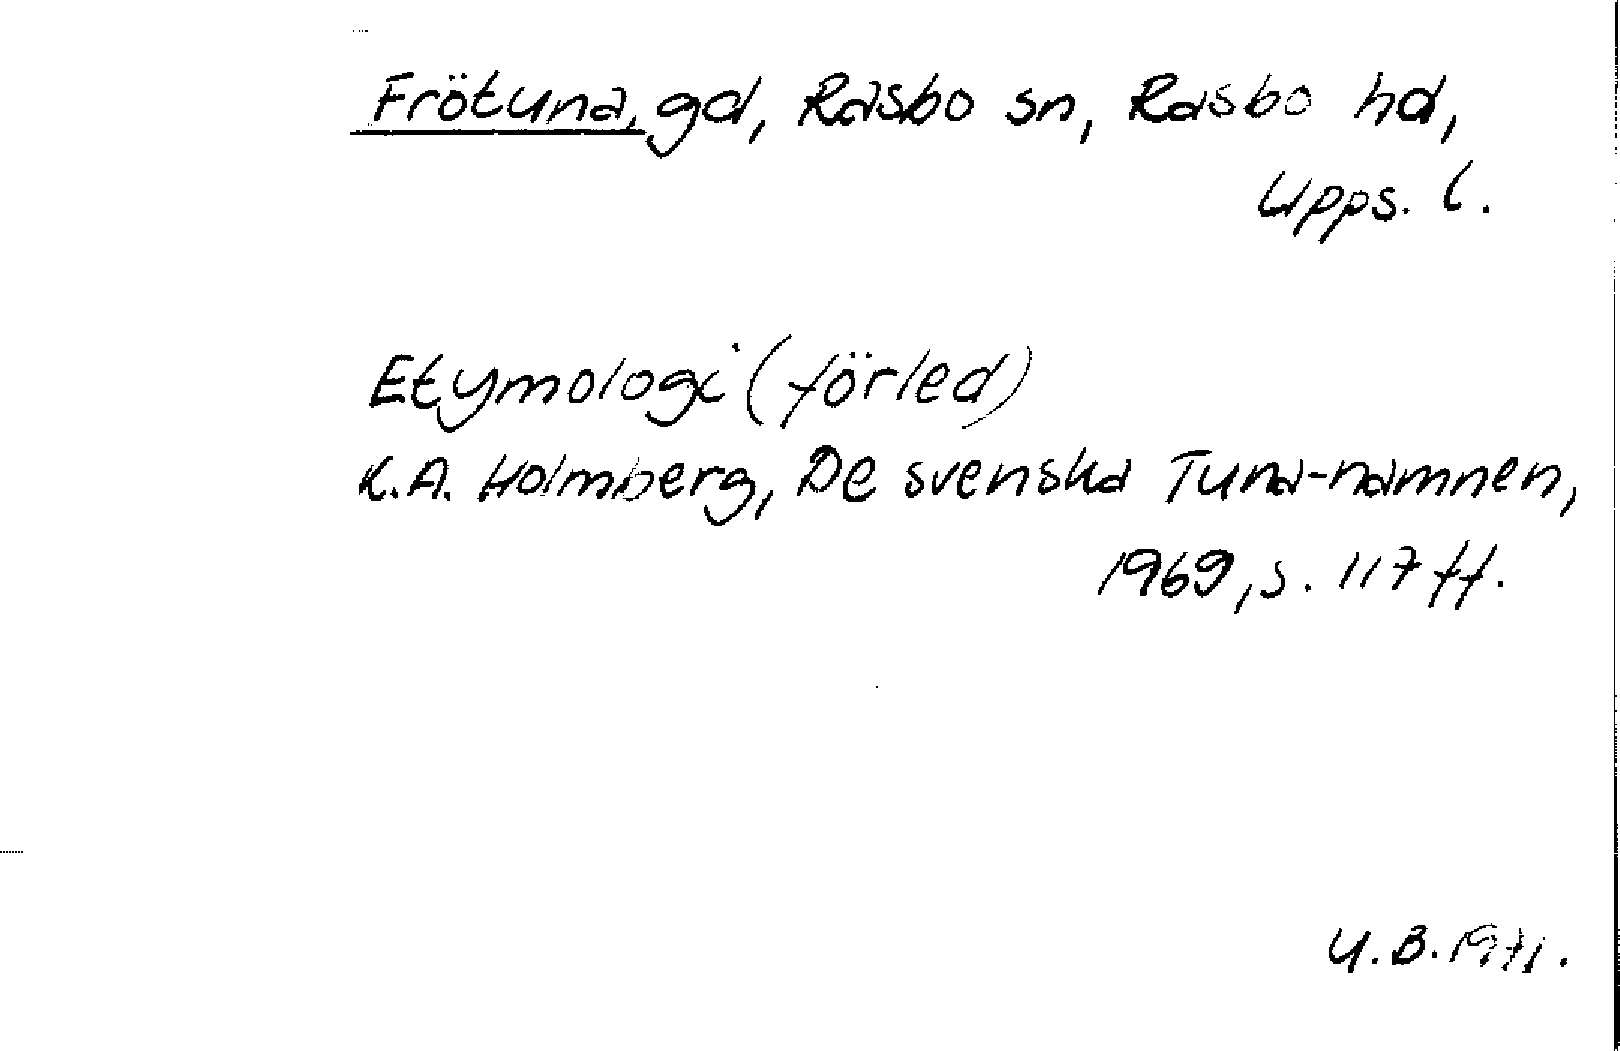 Frötuna, gd, Rasbo sn, Rasbo hd,
Upps. l.
Etymologi (förled)
K.A. Holmberg, De svenska Tuna-namnen,
1969, s. 117 ff.
U.B. 1971.